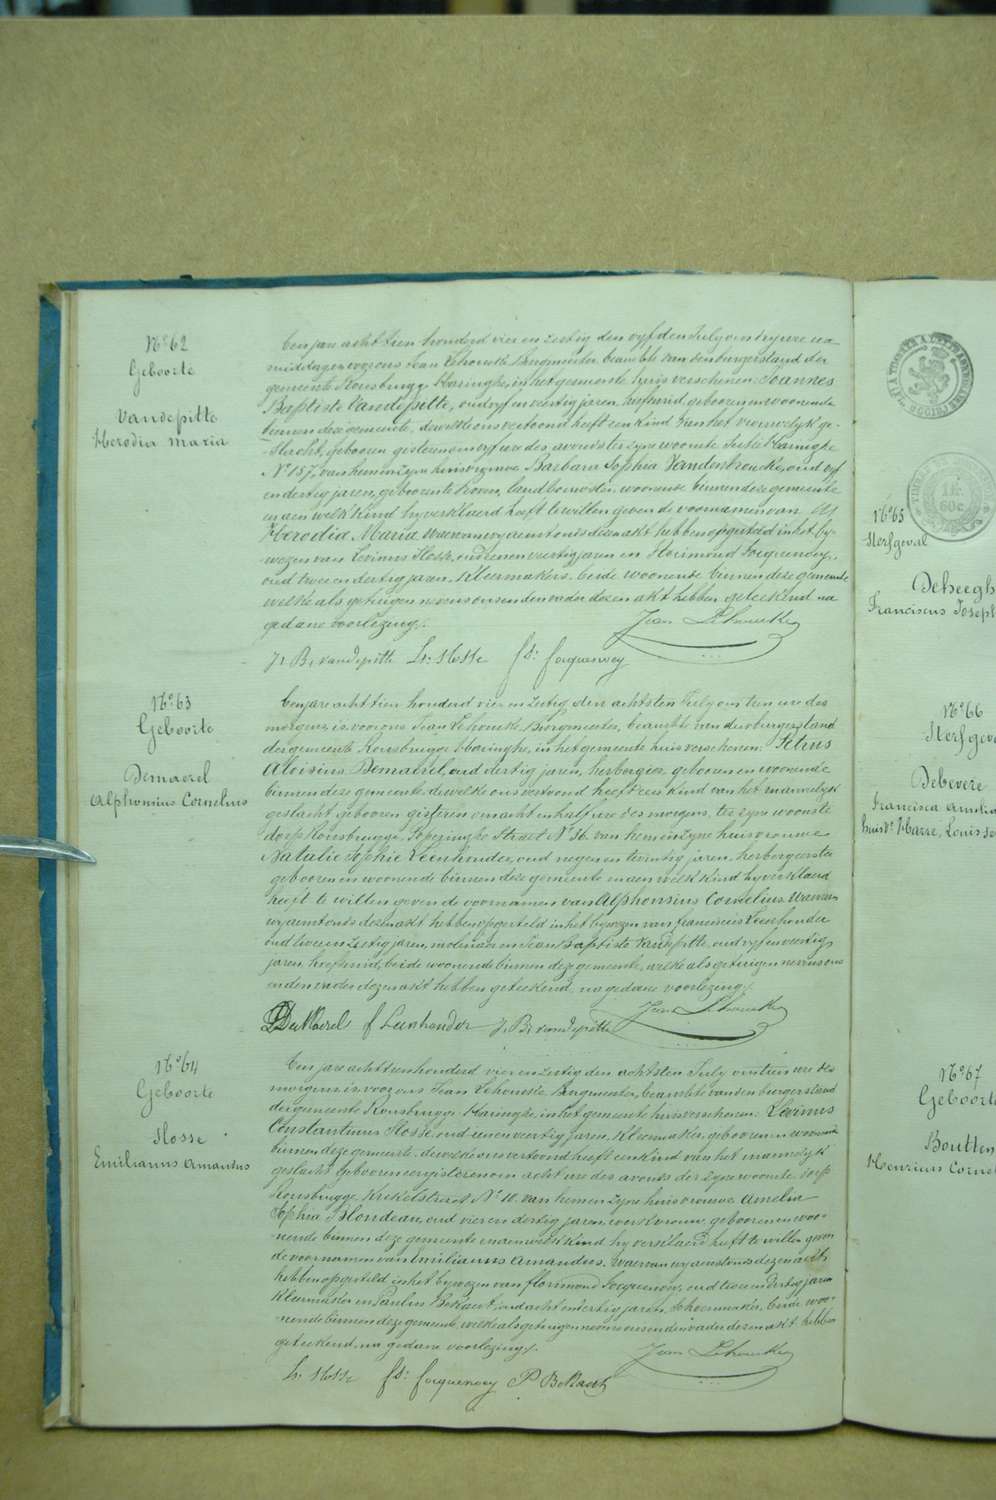 N° 62
Geboorte
Vandepitte
Herodia Maria
Een jare acht tien honderd vier en zestig den vyfden July om dry ure na
middag voor ons Jean Lehoucke Burgmeester beambte van den burgerstand der
gemeente Rousbrugge Haringhe, in het gemeente huis verschenen Joannes
Baptiste Vandepitte, oud vyf en veertig jaren, hoefsmid, geboren en woonende
binnen deze gemeente, dewelke ons vertoond heeft een kind van het vrouwelyk ge-
slacht, geboren gisteren om vyf ure des avonds ter zyne woonste Sectie Haringhe
N° 157, van hem en zyne huisvrouwe Barbara Sophia Vandenbroucke, oud vyf
en dertig jaren, geboren te Hoven, landbouwster, woonende binnen deze gemeente
en aen welk kind hy verklaerd heeft te willen geven de voornamen van
Herodia Maria waervan wy aenstonds dezen akt hebben opgesteld in het by-
wezen van Levinus Hosse, oud eenen veertig jaren en Florimond Focquenoey,
oud twee en dertig jaren, kleermakers, beide woonende binnen deze gemeente
welke als getuigen nevens ons en den vader dezen akt hebben geteekend na
gedane voorlezing.
Jean Lehoucke
Js. Bte vandepitte Ls. Hosse fd: focquenoey
N° 63
Geboorte
Demaerel
Alphonsius Cornelius
Een jare acht tien honderd vier en zestig den achtsten July om tien ure des
morgens is voor ons Jean Lehoucke Burgmeester, beambte van den burgerstand
der gemeente Rousbrugge Haringhe, in het gemeente huis verschenen: Petrus
Aloisius Demaerel, oud dertig jaren, herbergier, geboren en woonende
binnen deze gemeente, dewelke ons vertoond heeft een kind van het mannelyk
geslacht geboren gisteren om acht en half ure des morgens, ter zyne woonste
dorp Rousbrugge, Poperinghe Straet N° 36 van hem en zyne huisvrouwe
Natalie Sophie Leenhouder, oud negen en twintig jaren, herbergierster
geboren en woonende binnen deze gemeente en aen welk kind hy verklaerd
heeft te willen geven de voornamen van Alphonsius Cornelius. Waervan
wy aenstonds dezen akt hebben opgesteld in het bywezen van franciscus Leenhouder
oud twee en zestig jaren, molenaer en Jean Baptiste Vandepitte, oud vyf en veertig
jaren, hoefsmid, beide woonende binnen deze gemeente, welke als getuigen nevens ons
en den vader dezen akt hebben geteekend na gedane voorlezing.
Jean Lehoucke
DeMaerel f Leenhouder Js. Bte vandepitte
N° 64
Geboorte
Hosse
Emilianus Amandus
Een jare acht tien honderd vier en zestig den achtsten July om tien ure des
morgens is voor ons Jean Lehoucke Burgmeester, beambte van den burgerstand
der gemeente Rousbrugge Haringhe in het gemeente huis verschenen: Levinus
Constantinus Hosse, oud eenen veertig jaren, Kleermaker, geboren en woonende
binnen deze gemeente, dewelke ons vertoond heeft een kind van het mannelyk
geslacht geboren eergisteren om acht ure des avonds ter zyne woonste dorp
Rousbrugge Krekelstraet N° 10 van hem en zyne huisvrouwe Amelia
Sophia Blondeau, oud vier en dertig jaren, werkvrouw, geboren en woo-
nende binnen deze gemeente en aen welk kind hy verklaerd heeft te willen geven
de voornamen van Emilianus Amandus. Waervan wy aenstonds dezen akt
hebben opgesteld in het bywezen van florimond Focquenoey, oud twee en dertig jaren
Kleermaker en Paulus Bekaert, oud acht en dertig jaren, schoenmaker, beide woo-
nende binnen deze gemeente, welke als getuigen nevens ons en den vader dezen akt hebben
geteekend, na gedane voorlezing.
Jean Lehoucke
Ls. Hosse fd: focquenoey P Bekaert
N° 65
Sterfgeval
Deheegh
Franciscus Joseph
N° 66
Sterfgeva
Debevere
Francisca Amelia
huisv° Harre, Louis Jo
N° 67
Geboorte
Boutten
Henrius Cornel
1 fr.
60c